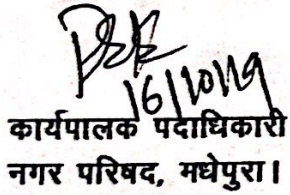 16/10/19
कार्यपालक पदाधिकारी
नगर परिषद, मधेपुरा।